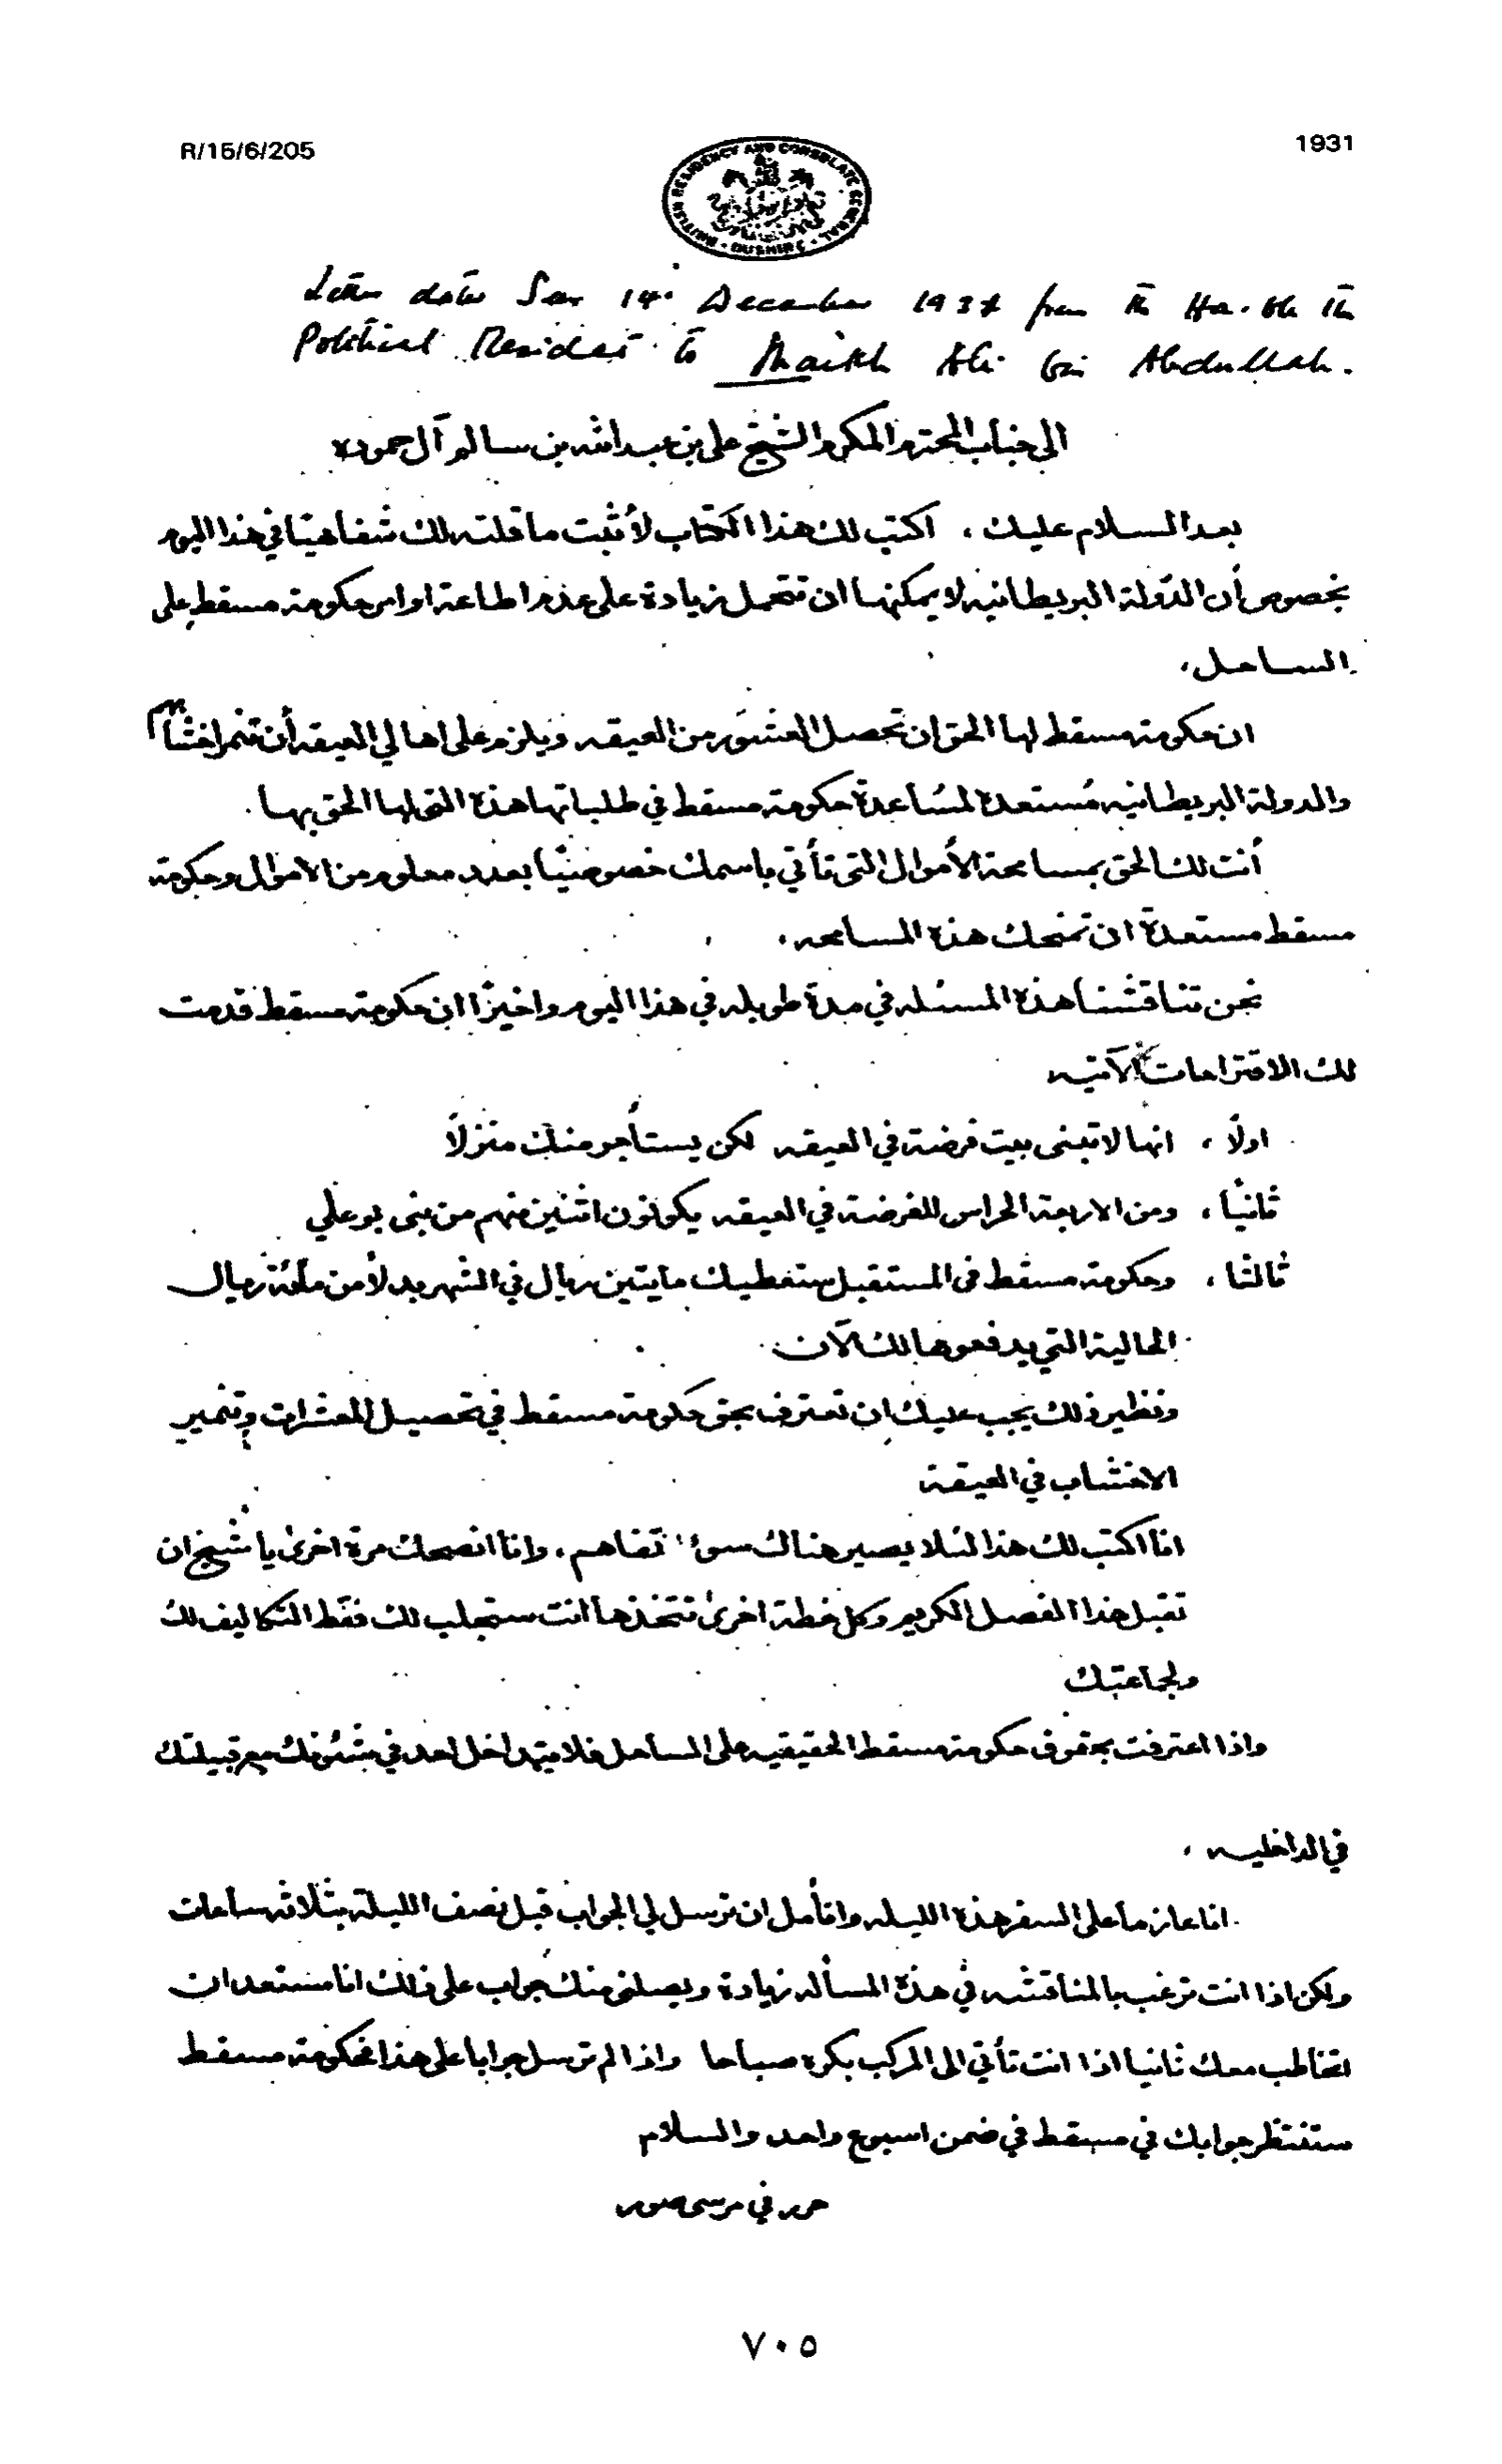 R/15/6/205
1931
BRITISH RESIDENCY AND CONSULATE GENERAL · BUSHIRE ·
Letter dated Sur 14th December 193 from the Hon'ble the
Political Resident to Shaikh Ali bin Abdullah.
الى جناب المحترم المكرم الشيخ علي بن عبدالله بن سالم آل حموده
بعد السلام عليك ، اكتب لك هذا الكتاب لأثبت ما قلته لك شفاهيًا في هذا اليوم
بخصوص أن الدولة البريطانيه لا يمكنها ان تتحمل زيادة على عدم اطاعة اوامر حكومة مسقط على
الساحل،
ان حكومة مسقط لها الحق ان تحصل العشور من العيقه ويلزم على اهالي العيقه أن
والدولة البريطانيه مُستعدة لمسَاعدة حكومة مسقط في طلباتها هذة التي لها الحق بها .
أنت لك الحق بمسامحة الأموال التي تأتي باسمك خصوصيًا بعدد معلوم من الاموال وحكومة
مسقط مستعدة ان تمنحك هذة المسامحه .
نحن تناقشنا هذة المسئله في مدة طويله في هذا اليوم واخيرًا ان حكومة مسقط قدمت
لك الاقتراحات الآتيه
اولًا ، انها لا تبنى بيت فرضة في العيقه لكن يستأجر منك منزلًا
ثانيًا ، ومن الاربعة الحراس للفرضة في العيقه يكونون اثنين منهم من بنى بو علي
ثالثا ، وحكومة مسقط في المستقبل ستعطيك مايتين ريال في الشهر بدلًا من مائة ريال
الحالية التي يدفعوها لك الآن
ونظير ذلك يجب عليك ان تعترف بحق حكومة مسقط في تحصيل العشرات وتثمير
الاخشاب في العيقة
انا اكتب لك هذا لئلا يصير هناك سوء تفاهم ، وانا انصحك مرة اخرى يا شيخ ان
تقبل هذا الفصل الكريم وكل خطة اخرى تتخذها انت ستجلب لك فقط التكاليف لك
ولجماعتك
واذا اعترفت بحقوق حكومة مسقط الحقيقيه على الساحل فلا يتداخل احد في شئونك مع قبيلتك
في الداخليه ،
انا عازما على السفر هذة الليله وانا آمل ان ترسل لي الجواب قبل نصف الليلة بثلاثه ساعات
ولكن اذا انت ترغب بالمناقشه في هذة المسأله زيادة ويصلني منك جواب على ذلك انا مستعد ان
اتخاطب معك ثانيا اذا انت تأتي الى المركب بكره صباحا واذا لم ترسل جوابا على هذا فحكومة مسقط
ستنتظر جوابك في مسقط في ضمن اسبوع واحد والسلام
حرر في مرسى صور
٧٠٥